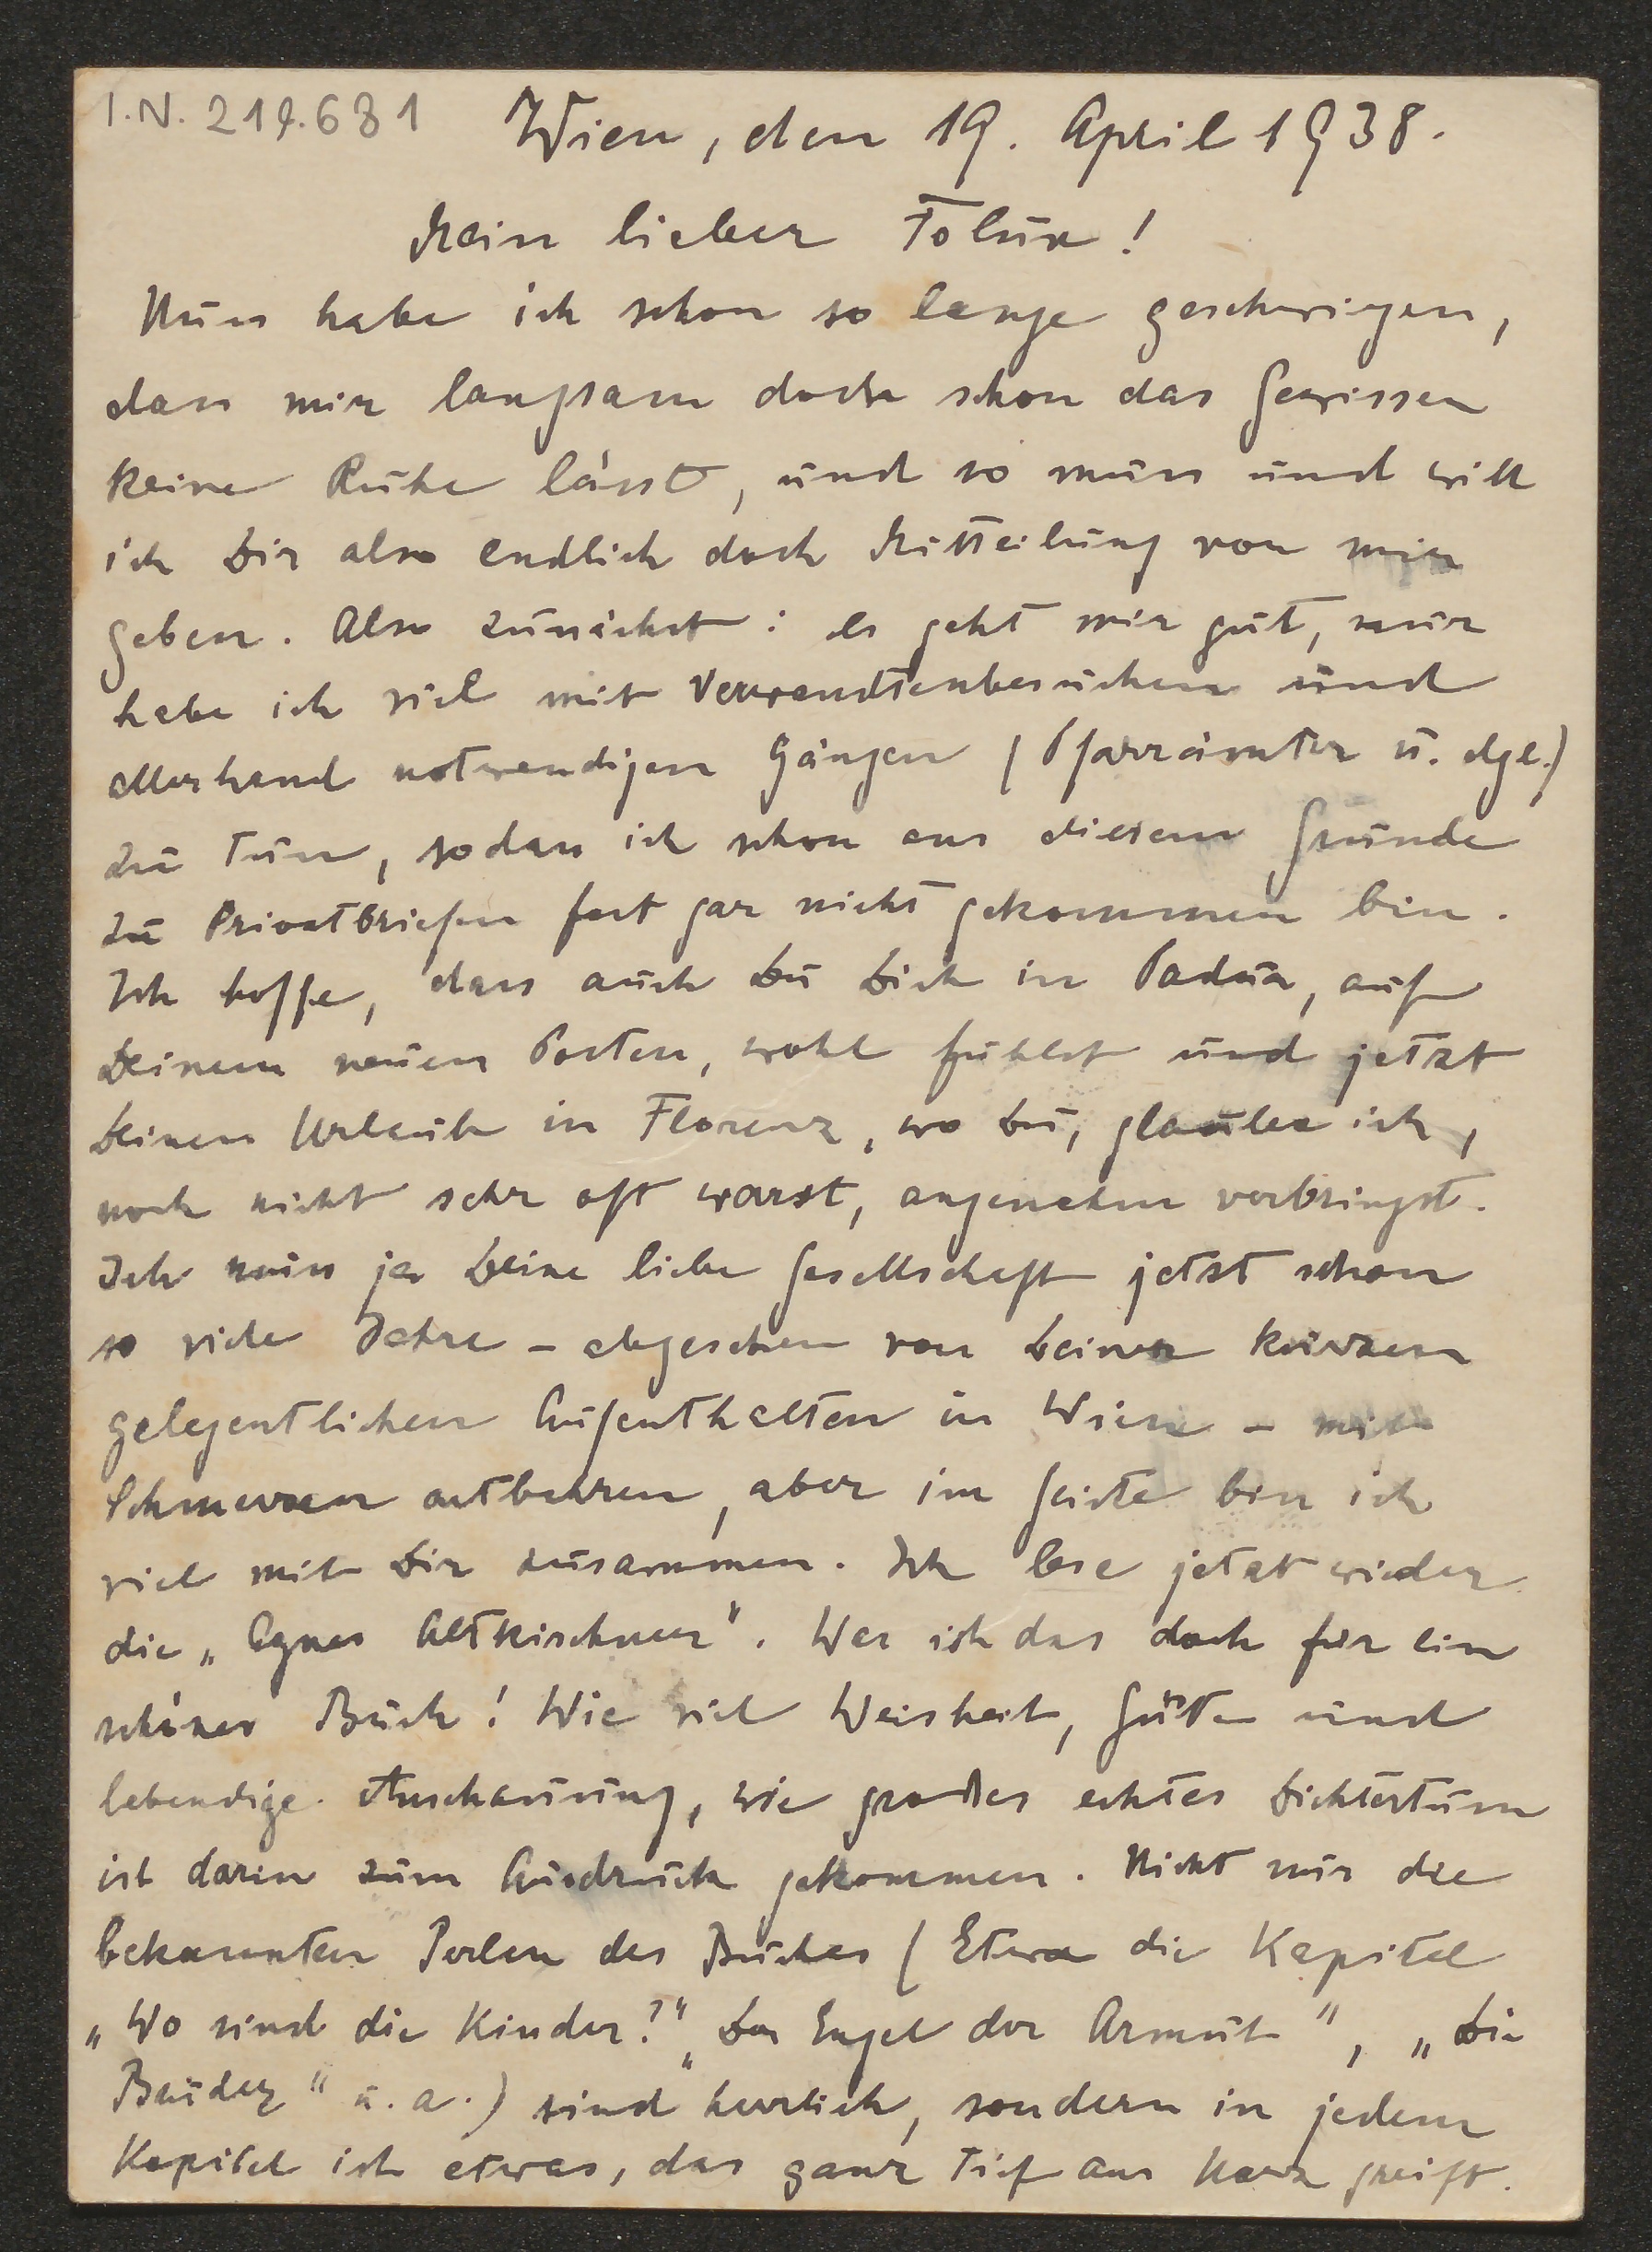 I.N. 219.681
Wien, den 19. April 1938.
Mein lieber Folux!
Nun habe ich schon so lange geschwiegen,
dass mir langsam doch schon das Gewissen
keine Ruhe lässt, und so muss und will
ich Dir also endlich doch Mitteilung von mir
geben. Also zunächst: es geht mir gut, nur
habe ich viel mit Verwandtenbesuchen und
allerhand notwendigen Gängen (Pfarrämter u. dgl.)
zu tun, sodass ich schon aus diesem Grunde
zu Privatbriefen fast gar nicht gekommen bin.
Ich hoffe, dass auch Du Dich in Padua, auf
Deinem neuen Posten, wohl fühlst und jetzt
Deinen Urlaub in Florenz, wo Du, glaube ich,
noch nicht sehr oft warst, angenehm verbringst.
Ich muss ja Deine liebe Gesellschaft jetzt schon
so viele Jahre - abgesehen von Deinen kurzen
gelegentlichen Aufenthalten in Wien - mit
Schmerzen entbehren, aber im Geiste bin ich
viel mit Dir zusammen. Ich lese jetzt wieder
die „Agnes Altkirchner". Was ist das doch für ein
schönes Buch! Wie viel Weisheit, Güte und
lebendige Anschauung, wie großes echtes Dichtertum
ist darin zum Ausdruck gekommen. Nicht nur die
bekannten Perlen des Buches (Etwa die Kapitel
„Wo sind die Kinder?" „Der Engel der Armut", „Die
Brüder" u. a.) sind herrlich, sondern in jedem
Kapitel ist etwas, das ganz tief ans Herz greift.